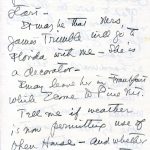 Dear -
It may be that Mrs.
James Trumble will go to
Florida with me - She is
a decorator -
I may leave her in
while I come to Pine Hill.
Tell me if weather
is now permitting use of
Open House - and whether